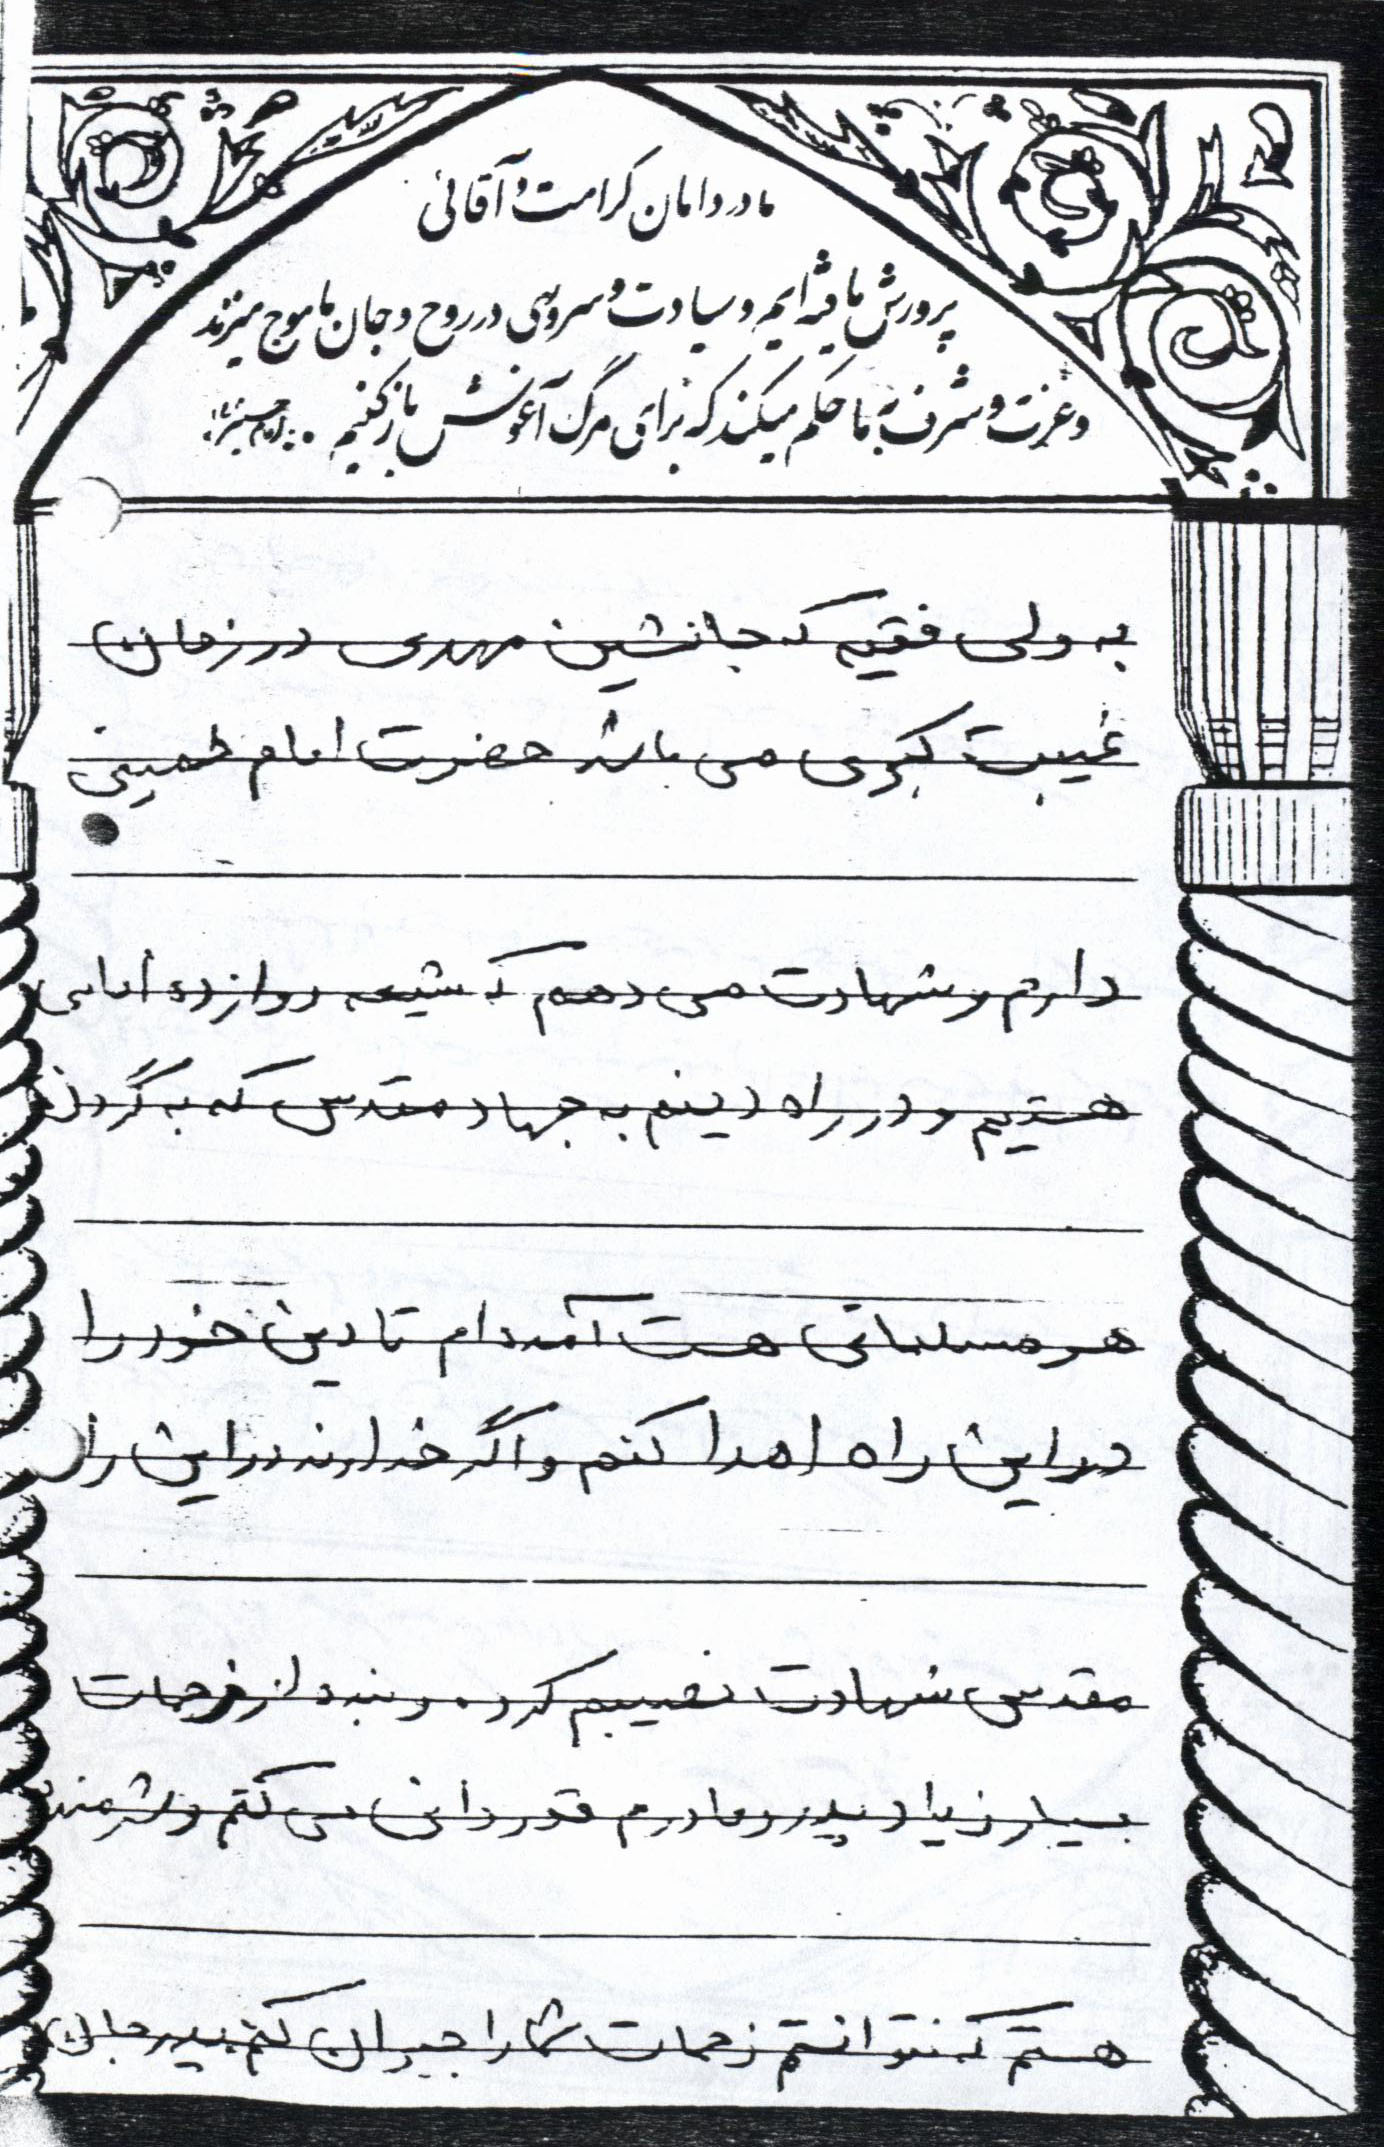 ما در دامان کرامت و آقائی
پرورش یافته ایم و سیادت و سروری در روح و جان ما موج میزند
و عزت و شرف به ما حکم میکند که برای مرگ آغوش باز کنیم . امام حسین (ع)
به ولی فقیه که جانشین مهدی در زمان
غیبت کبری می باشد حضرت امام خمینی
دارم و شهادت می دهم که شیعه دوازده امامی
هستیم و در راه دینم به جهاد مقدس که به گردن
هر مسلمانی هست آمده ام تا دین خود را
در این راه اهدا کنم و اگر خداوند در این راه
مقدس شهادت نصیبم کرد و بنده از زحمات
بسیار زیاد پدر و مادرم قدردانی می کنم و شرمنده
هستم که نتوانستم زحمات شما را جبران کنم پدر جان